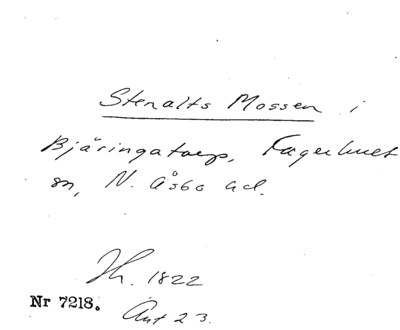 Stenalts Mossen i
Bjäringatorp, Fagerhult
sn, N. Åsbo hd.
Jh. 1822
Nr 7218.
Ant 23.